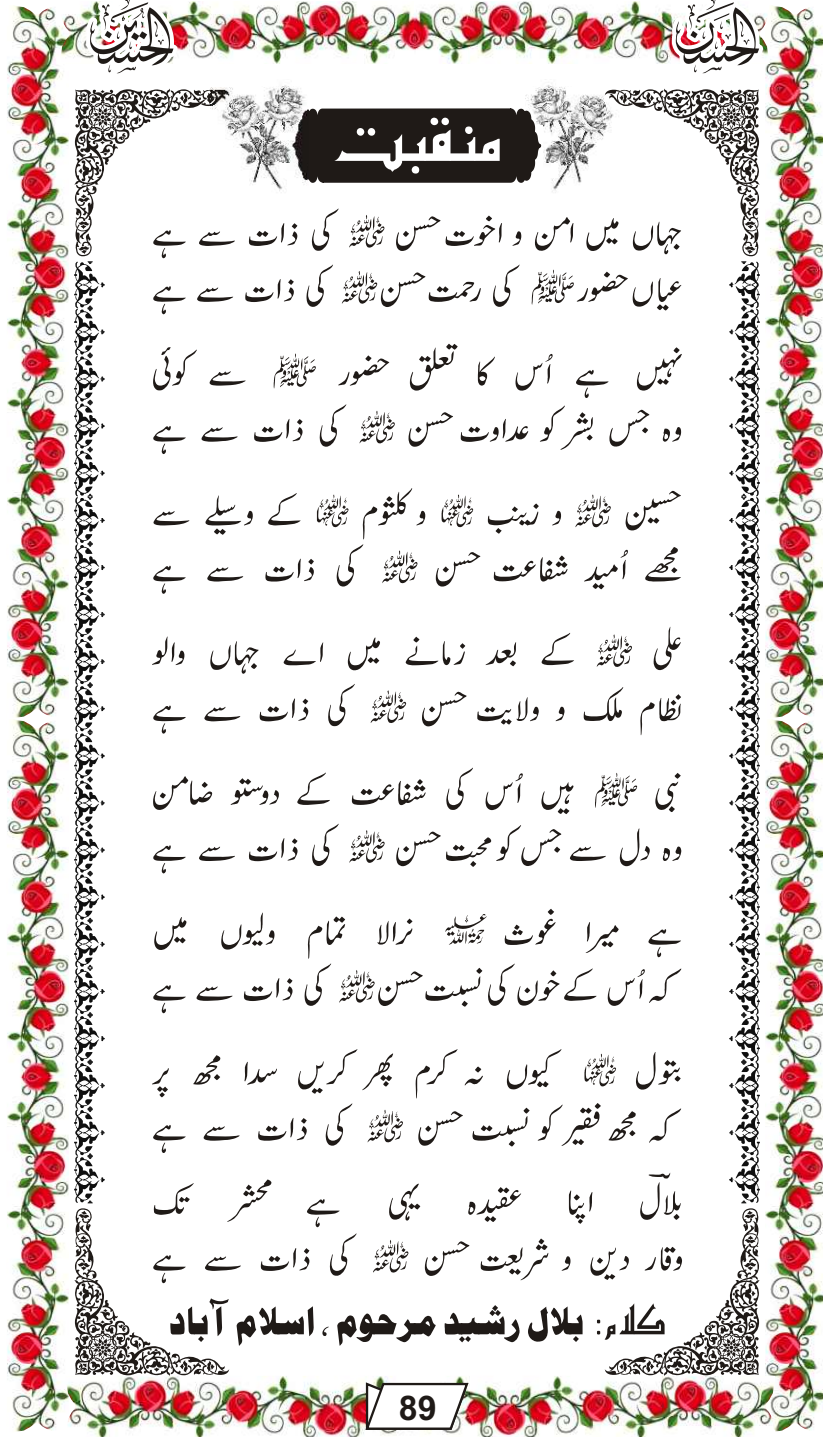 الحسین
الحسن
منقبت
جہاں میں امن و اخوت حسن رضی اللہ عنہ کی ذات سے ہے
عیاں حضور صلی اللہ علیہ وسلم کی رحمت حسن رضی اللہ عنہ کی ذات سے ہے
نہیں ہے اُس کا تعلق حضور صلی اللہ علیہ وسلم سے کوئی
وہ جس بشر کو عداوت حسن رضی اللہ عنہ کی ذات سے ہے
حسین رضی اللہ عنہ و زینب رضی اللہ عنہا و کلثوم رضی اللہ عنہا کے وسیلے سے
مجھے اُمید شفاعت حسن رضی اللہ عنہ کی ذات سے ہے
علی رضی اللہ عنہ کے بعد زمانے میں اے جہاں والو
نظام ملک و ولایت حسن رضی اللہ عنہ کی ذات سے ہے
نبی صلی اللہ علیہ وسلم ہیں اُس کی شفاعت کے دوستو ضامن
وہ دل سے جس کو محبت حسن رضی اللہ عنہ کی ذات سے ہے
ہے میرا غوث رحمۃ اللہ علیہ نرالا تمام ولیوں میں
کہ اُس کے خون کی نسبت حسن رضی اللہ عنہ کی ذات سے ہے
بتول رضی اللہ عنہا کیوں نہ کرم پھر کریں سدا مجھ پر
کہ مجھ فقیر کو نسبت حسن رضی اللہ عنہ کی ذات سے ہے
بلالؔ اپنا عقیدہ یہی ہے محشر تک
وقار دین و شریعت حسن رضی اللہ عنہ کی ذات سے ہے
کلام: بلال رشید مرحوم، اسلام آباد
89